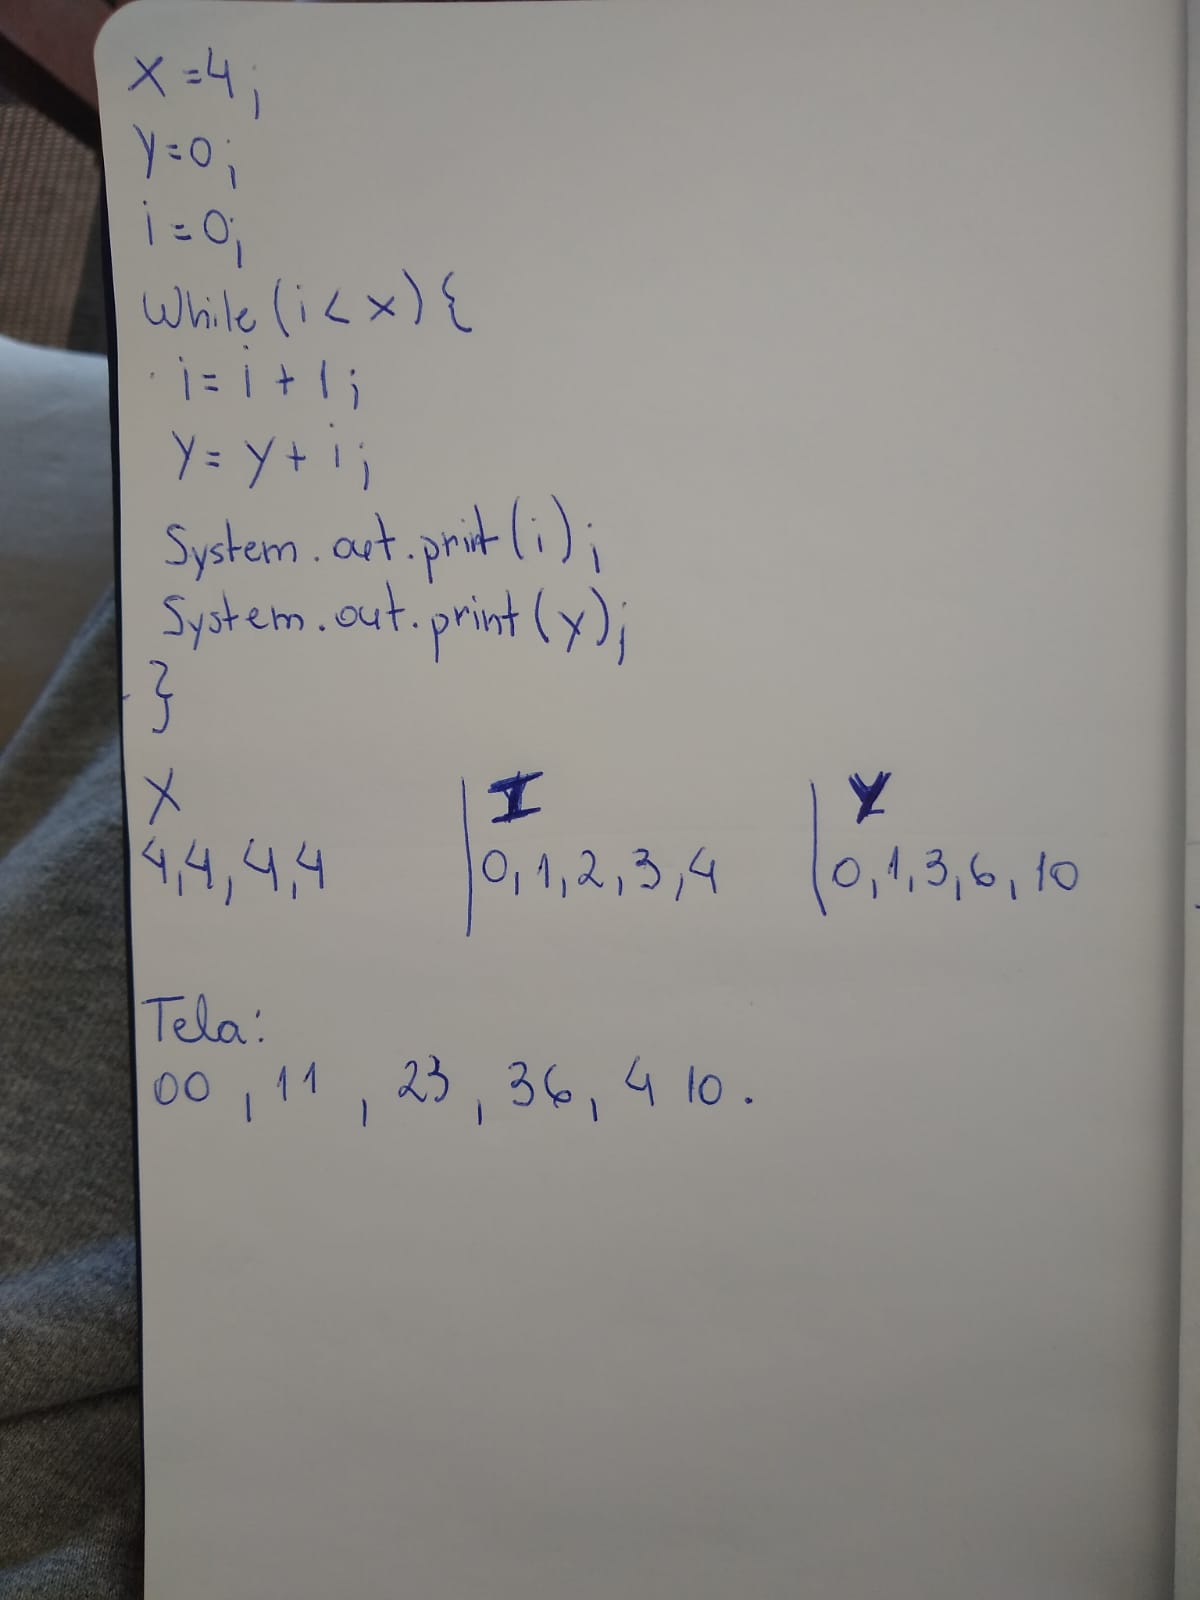 X=4;
Y=0;
i=0;
While (i < x) {
i= i + 1;
Y= Y+ i;
System.out.print(i);
System.out.print(y);
}
X | I | Y
4,4,4,4 | 0,1,2,3,4 | 0,1,3,6,10
Tela:
00, 11, 23, 36, 4 10.